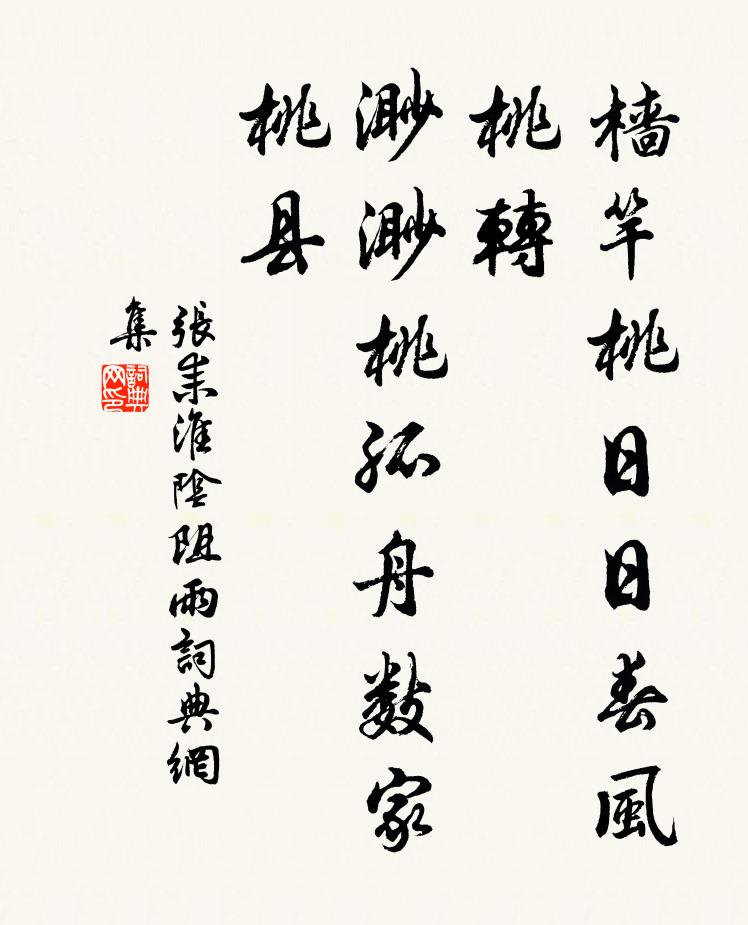 檣竿桃日日春風
桃轉
渺渺桃孤舟数家
桃县
張耒淮陰阻雨詞典網
集
詞典
网印